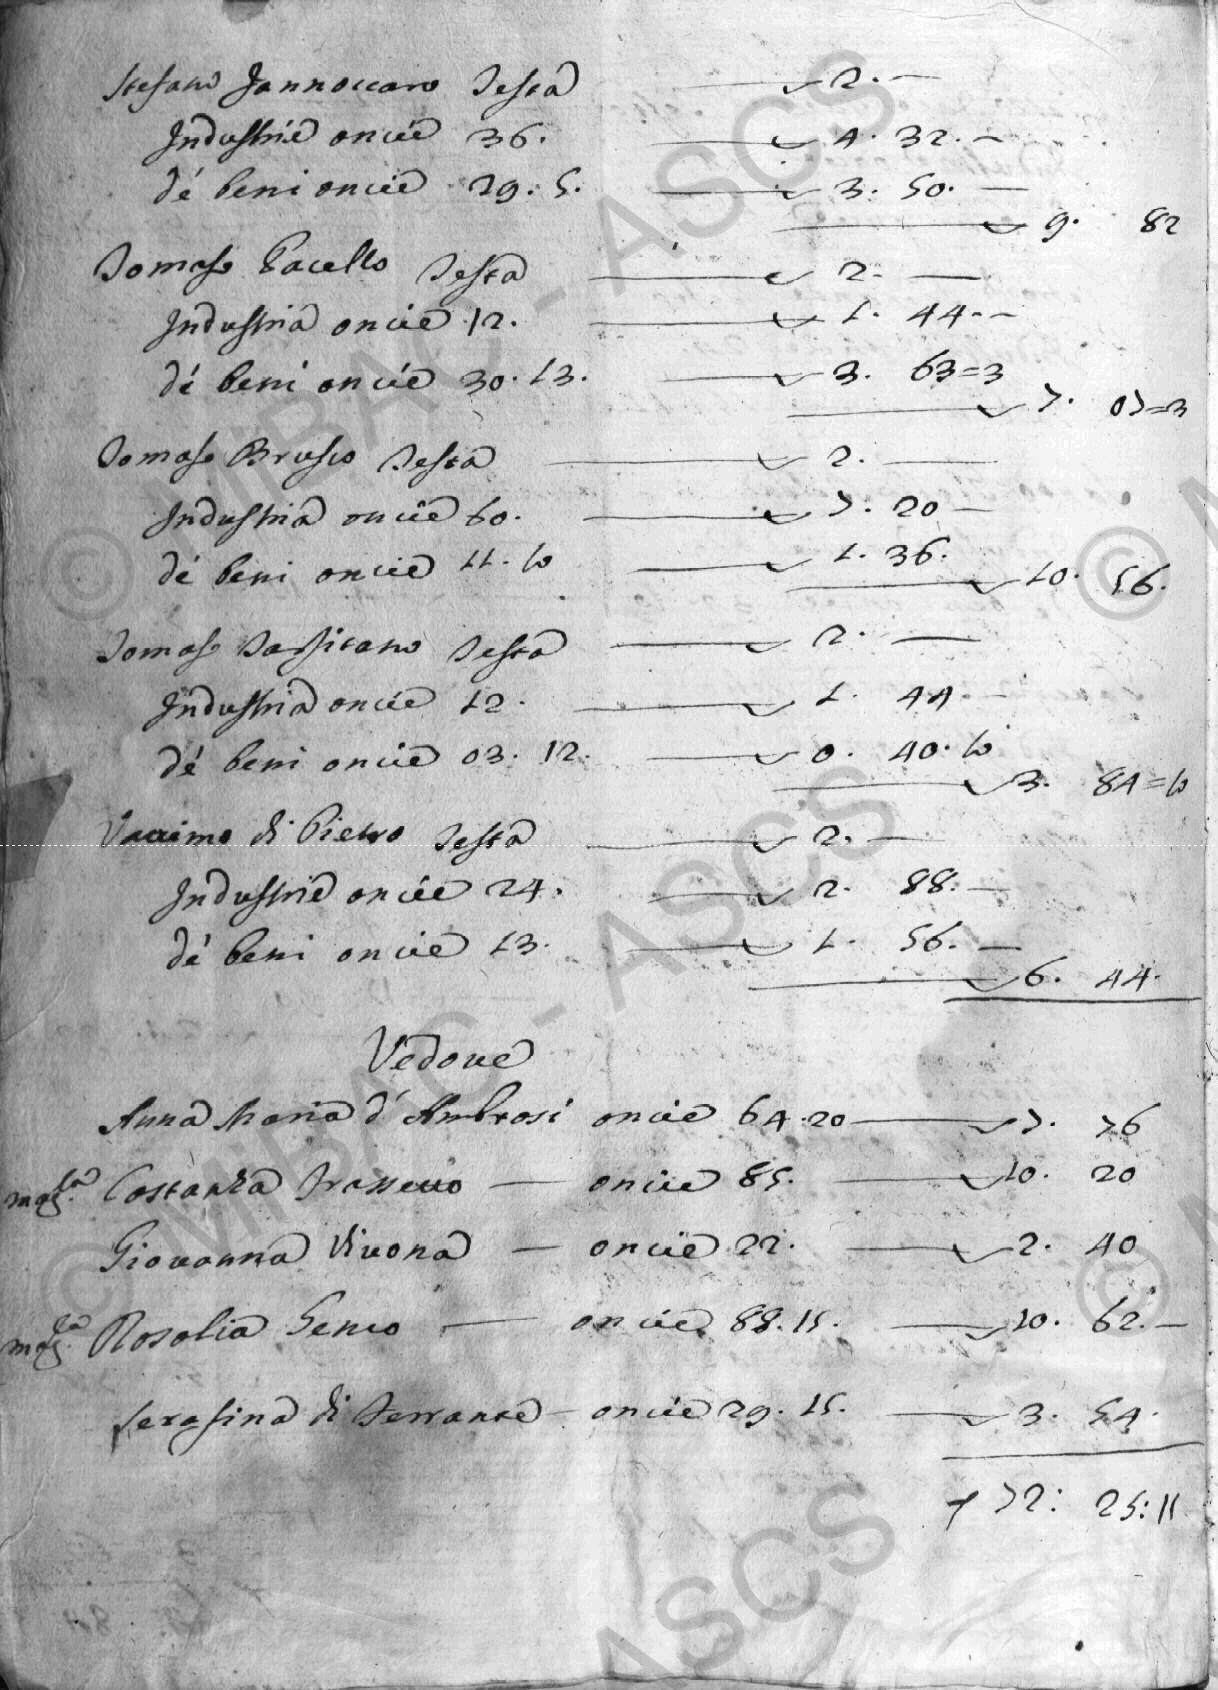 Stefano Jannoccaro Testa 2. —
Industrie oncie 36. 4. 32. —
dé beni oncie 29. 5. 3. 50. —
9. 82
Tomaso Pacello Testa 2. —
Industria oncie 12. 1. 44. —
dé beni oncie 30. 13. 3. 63=3
7. 07=3
Tomaso Brusco Testa 2. —
Industria oncie 60. 7. 20 —
dé beni oncie 11. 10 1. 36.
10. 56.
Tomaso Tarsitano Testa 2. —
Industria oncie 12. 1. 44 —
dé beni oncie 03. 12. 0. 40. 10
3. 84=10
di Pietro Testa 2. —
Industrie oncie 24. 2. 88. —
dé beni oncie 13. 1. 56. —
6. 44.
Vedove
Anna Maria d'Ambrosi oncie 64. 20 — 7. 76
mag.ca Costanza — oncie 85. — 10. 20
Giovanna Vivona — oncie 22. — 2. 40
mag.ca Rosolia Senco — oncie 88. 15. — 10. 62. —
Serafina di Terrante — oncie 29. 15. — 3. 54.
72: 25: 11
© MIBAC - ASCS
© MIBAC - ASCS